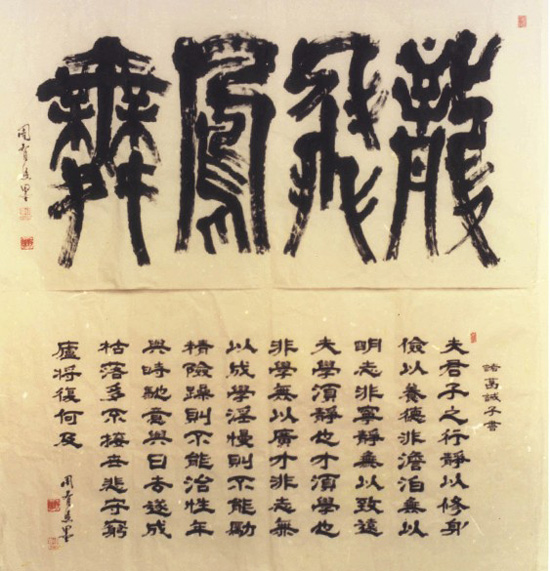 龍飛鳳舞
諸葛誡子書
夫君子之行靜以修身
儉以養德非澹泊無以
明志非寧靜無以致遠
夫學須靜也才須學也
非學無以廣才非志無
以成學淫慢則不能勵
精險躁則不能治性年
與時馳意與日去遂成
枯落多不接世悲守窮
廬將復何及